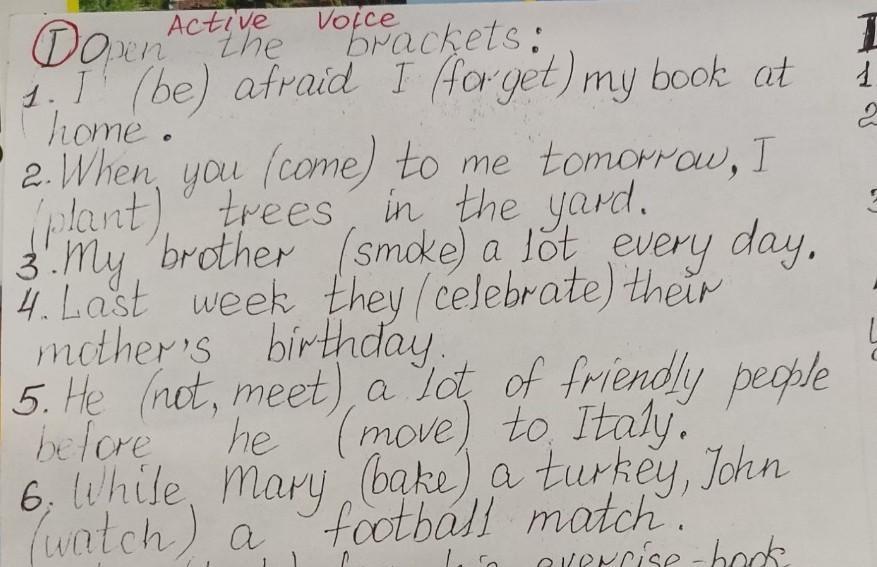 Active Voice
I Open the brackets:
1. I (be) afraid I (forget) my book at
home.
2. When you (come) to me tomorrow, I
(plant) trees in the yard.
3. My brother (smoke) a lot every day.
4. Last week they (celebrate) their
mother's birthday.
5. He (not, meet) a lot of friendly people
before he (move) to Italy.
6. While Mary (bake) a turkey, John
(watch) a football match.
exercise-book
1
2